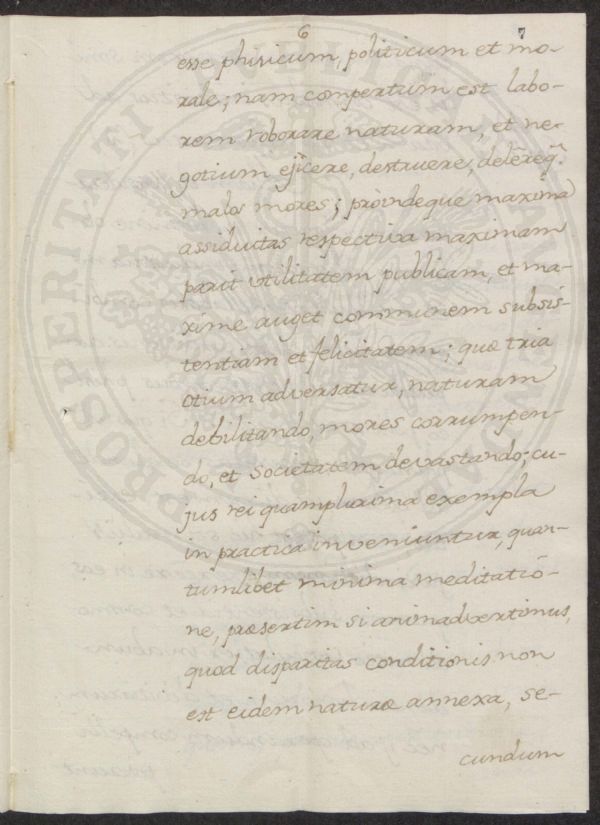 6
7
esse phisicum, politicum et mo-
rale; nam compertum est labo-
rem roborare naturam, et ne-
gotium ejicere, destruere, delēreq̃.
malos mores; proindeque maxima
assiduitas respectiva maximam
parit utilitatem publicam, et ma-
xime auget communem subsis-
tentiam et felicitatem; quæ tria
otium adversatur, naturam
debilitando, mores corrumpen-
do, et Societatem devastando; cu-
jus rei quamplurima exempla
in practica inveniuntur, quan-
tumlibet minima meditatio-
ne, præsertim si animadvertimus,
quod disparitas conditionis non
est eidem naturæ annexa, se-
cundum
PROSPERITATI PUBLICAE AUGENDAE